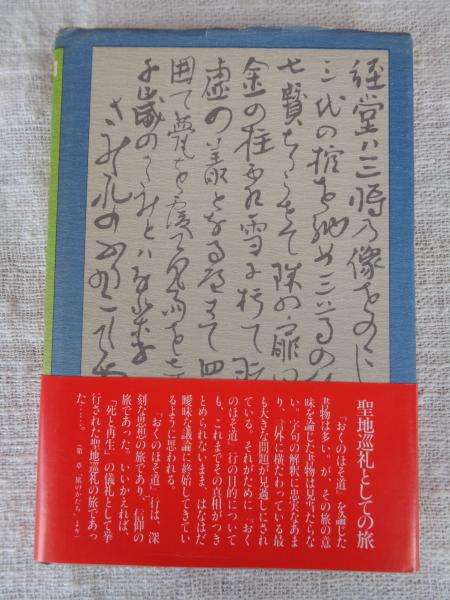 経堂ハ三将の像をのこし
三代の棺を納め三尊の仏
七賢ちりうせて珠の扉
金の柱霜雪に朽て
虚の叢となる
囲て甍を覆て風雨を
千歳のかたみとハなれり
さみたれの
聖地巡礼としての旅
『おくのほそ道』を論じた
書物は多い。が、その旅の意
味を論じた書物は見当たらな
い。字句の解釈に忠実なあま
り、言外に横たわっている最
も大きな問題が見過しにされ
ている。それがために『おく
のほそ道』行の目的について
も、これまでその真相がつき
とめられないまま、はなはだ
曖昧な議論に終始してきてい
るように思われる。
『おくのほそ道』行は、深
刻な思想の旅であり、信仰の
旅であった。いいかえれば、
「死と再生」の儀礼として挙
行された聖地巡礼の旅であっ
た……。
（第一章「旅のかたち」より）